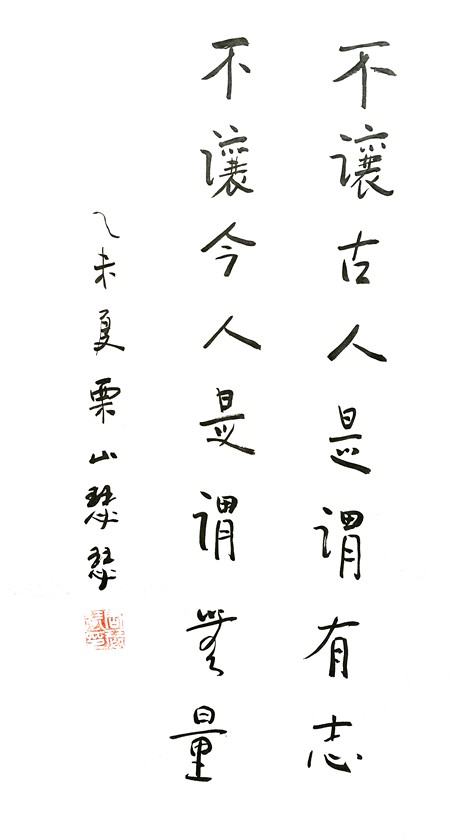 不讓古人是謂有志
不讓今人是謂無量
乙未夏栗山瑟瑟